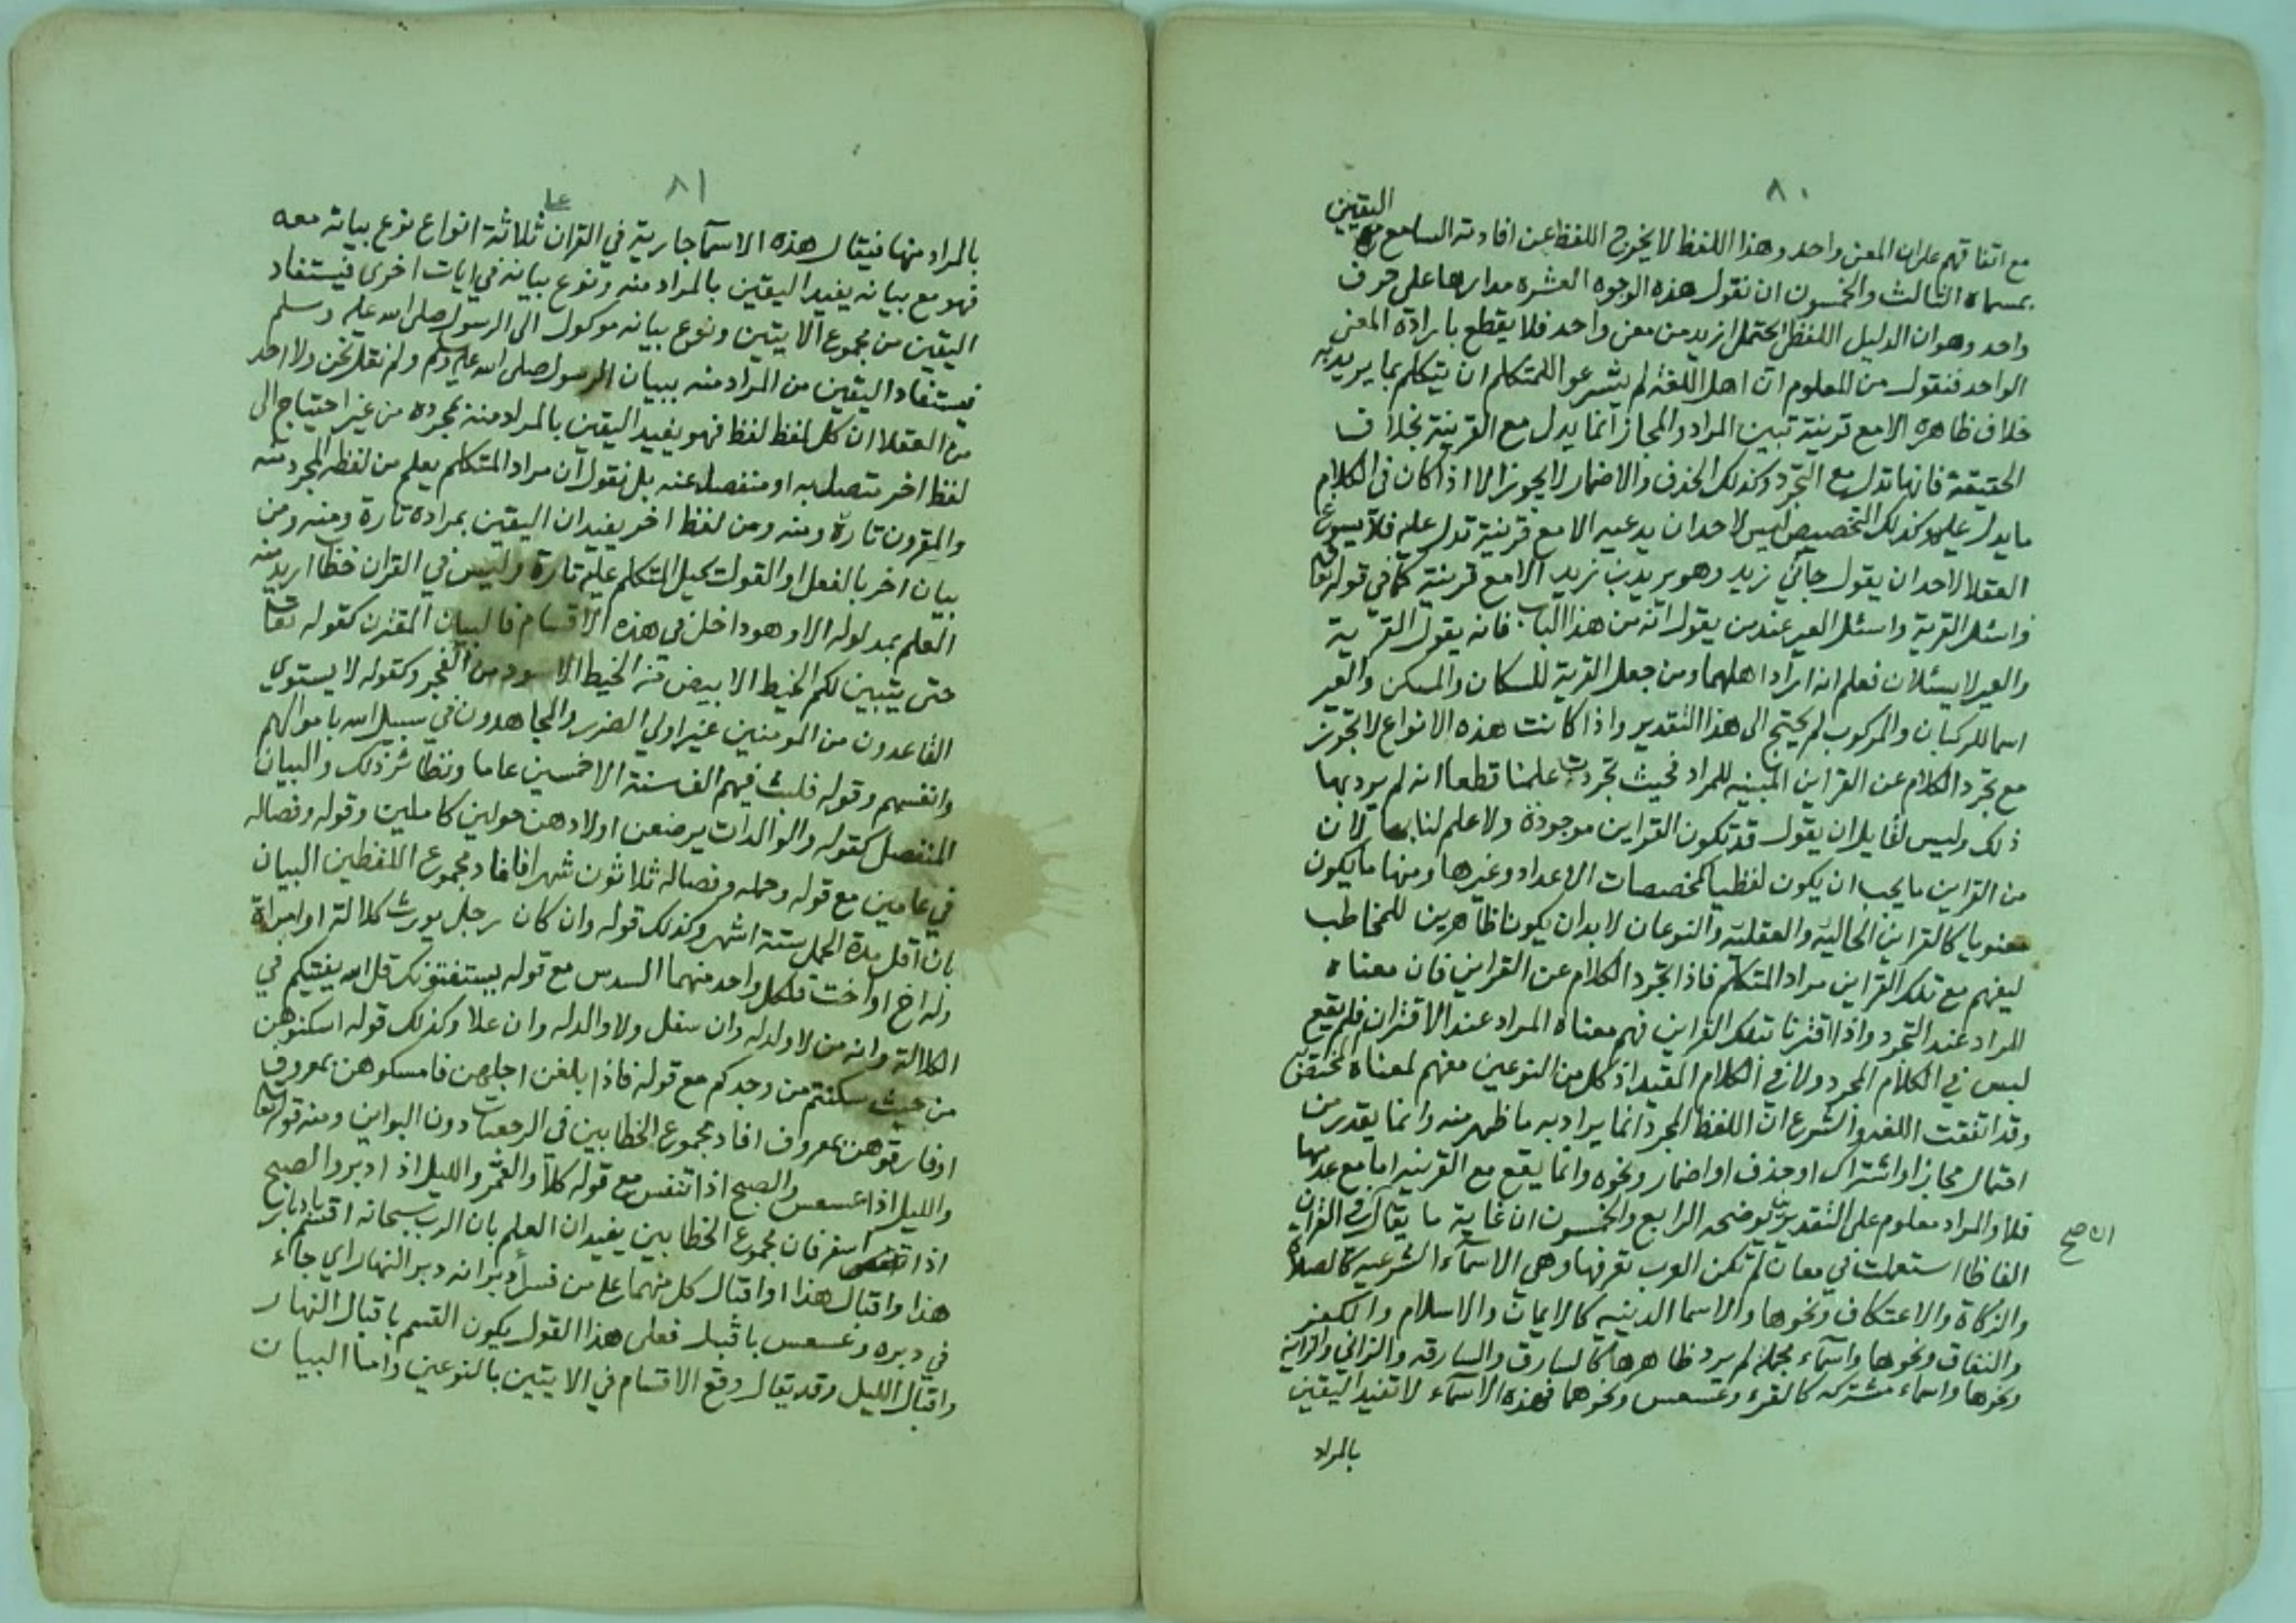 ٨٠
اليقين
مع اتفاقهم على ان المعنى واحد وهذا اللفظ لا يخرج اللفظ عن افادته السامع
بمسماه الثالث والخمسون ان نقول هذه الوجوه العشرة مدارها على حرف
واحد وهو ان الدليل اللفظي يحتمل ازيد من معنى واحد فلا يقطع بارادة المعنى
الواحد فنقول من المعلوم ان اهل اللغة لم يشرعوا للمتكلم ان يتكلم بما يريد به
خلاف ظاهره الا مع قرينة تبين المراد والمجاز انما يدل مع القرينة بخلاف
الحقيقة فانها تدل مع التجرد وكذلك الحذف والاضمار لا يجوز الا اذا كان في الكلام
ما يدل عليه وكذلك التخصيص ليس لاحد ان يدعيه الا مع قرينة تدل عليه فلا يسوغ
العقلا لاحد ان يقول جاني زيد وهو يريد بن زيد الا مع قرينة كما في قوله تعا
واسئل القرية واسئل العير عند من يقول انه من هذا الباب فانه يقول القرية
والعير لا يسئلان فعلم انه اراد اهلهما ومن جعل القرية للسكان والمسكن والعير
اسما للركبان والمركوب لم يحتج الى هذا التقدير واذا كانت هذه الانواع لا تجوز
مع تجرد الكلام عن القراين المبينه للمراد فحيث تجردت علمنا قطعا انه لم يرد بها
ذلك وليس لقايل ان يقول قد تكون القراين موجودة ولا علم لنا بها لان
من القراين ما يجب ان يكون لفظيا كمخصصات الاعداد وغيرها ومنها ما يكون
معنويا كالقراين الحاليه والعقليه والنوعان لا بد ان يكونا ظاهرين للمخاطب
ليفهم مع تلك القراين مراد المتكلم فاذا تجرد الكلام عن القراين فان معناه
المراد عند التجرد واذا اقترنا بتلك القراين فهم معناه المراد عند الاقتران فلم يقع
لبس في الكلام المجرد ولا في الكلام المقيد اذ كل من النوعين مفهم لمعناه المختص
وقد اتفقت اللغه والشرع ان اللفظ المجرد انما يراد به ما ظهر منه وانما يقدر من
احتمال مجاز او اشتراك او حذف او اضمار ونحوه وانما يقع مع القرينه اما مع عدمها
فلا والمراد معلوم على التقديرين يوضحه الرابع والخمسون ان غاية ما يقال ان في القران
الفاظا استعملت في معان لم تكن العرب تعرفها وهي الاسماء الشرعيه كالصلاة
والزكاة والاعتكاف ونحوها والاسما الدينيه كالايمان والاسلام والكفر
والنفاق ونحوها واسماء مجملة لم يرد ظاهرها كالسارق والسارقه والزاني والزانية
ونحوها واسماء مشتركه كالقرء وعسعس ونحوهما فهذه الاسماء لا تفيد اليقين
بالمراد
٨١
بالمراد منها فيقال هذه الاسما جارية في القران ثلاثة انواع نوع بيانه معه
فهو مع بيانه يفيد اليقين بالمراد منه ونوع بيانه في ايات اخرى فيستفاد
اليقين من مجموع الايتين ونوع بيانه موكول الى الرسول صلى الله عليه وسلم
فيستفاد اليقين من المراد منه ببيان الرسول صلى الله عليه وسلم ولم نقل نحن ولا احد
من العقلا ان كل لفظ لفظ فهو يفيد اليقين بالمراد منه بمجرده من غير احتياج الى
لفظ اخر متصل به او منفصل عنه بل نقول ان مراد المتكلم يعلم من لفظه المجرد منه
والمقرون تارة ومنه ومن لفظ اخر يفيدان اليقين بمراده تارة ومنه ومن
بيان اخر بالفعل او القول يحيل المتكلم عليه تارة وليس في القران خطاب اريد منه
العلم بمدلوله الا وهو داخل في هذه الاقسام فالبيان المقترن كقوله تعا
حتى يتبين لكم الخيط الابيض من الخيط الاسود من الفجر وكقوله لا يستوي
القاعدون من المومنين غير اولي الضرر والمجاهدون في سبيل الله باموالهم
وانفسهم وقوله فلبث فيهم الف سنة الا خمسين عاما ونظائر ذلك والبيان
المنفصل كقوله والوالدات يرضعن اولادهن حولين كاملين وقوله وفصاله
في عامين مع قوله وحمله وفصاله ثلاثون شهرا فافاد مجموع اللفظين البيان
بان اقل مدة الحمل ستة اشهر وكذلك قوله وان كان رجل يورث كلالة او امراة
وله اخ او اخت فلكل واحد منهما السدس مع قوله يستفتونك قل الله يفتيكم في
الكلالة وانه من لا ولد له وان سفل ولا والد له وان علا وكذلك قوله اسكنوهن
من حيث سكنتم من وجدكم مع قوله فاذا بلغن اجلهن فامسكوهن بمعروف
او فارقوهن بمعروف افاد مجموع الخطابين في الرجعيات دون البواين ومنه قوله تعا
والليل اذا عسعس والصبح اذا تنفس مع قوله كلا والقمر والليل اذ ادبر والصبح
اذا اسفر فان مجموع الخطابين يفيدان العلم بان الرب سبحانه اقسم بادبار
هذا واقبال هذا او اقبال كل منهما على من فسر ادبر انه دبر النهار اي جاء
في دبره وعسعس باقبل فعلى هذا القول يكون القسم باقبال النهار
واقبال الليل وقد يقال وقع الاقسام في الايتين بالنوعين واما البيان